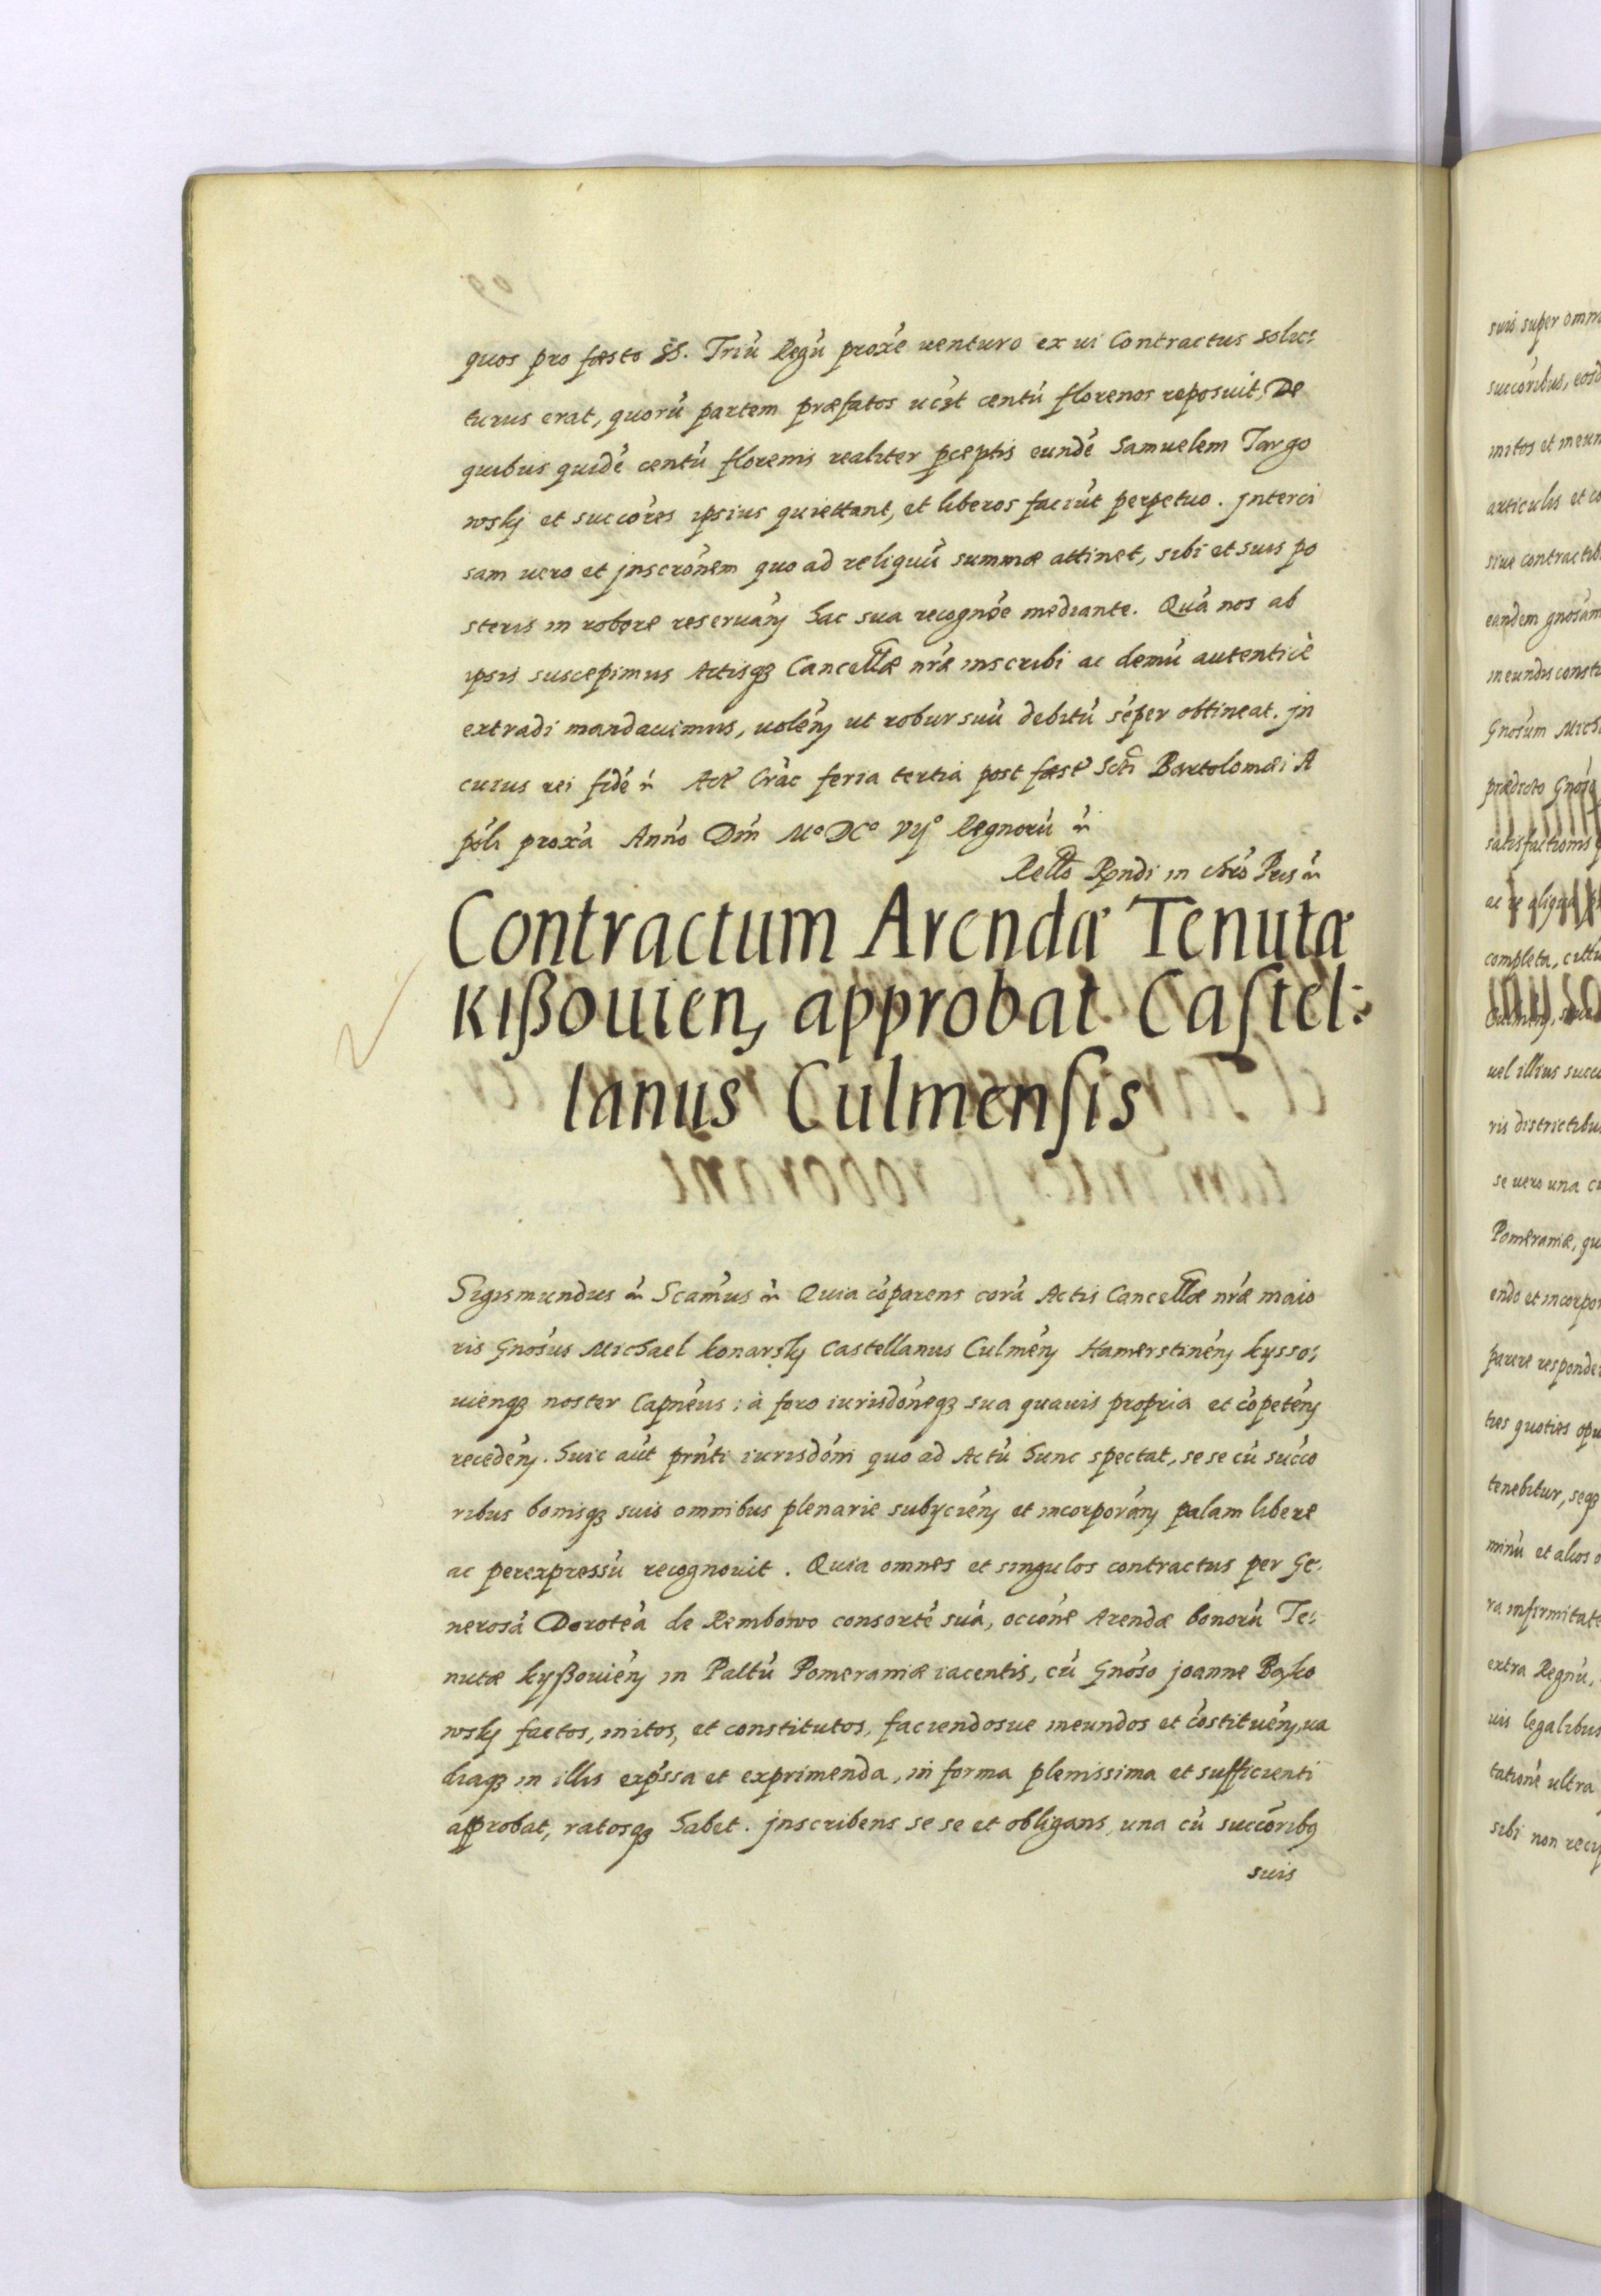 quos pro fæsto SS. Triũ Regũ proxé uenturo ex ui Contractus solu:
turus erat, quorũ partem præfatos uczt centũ florenos reposuit, De
quibus quidé centũ florenis realiter pceptis eundé Samuelem Targo
wskj et succóres ipsius quiettant, et liberos faciũt perpetuo. Jnterci
sam uero et jnscrónem quo ad reliquũ summæ attinet, sibi et suis po
steris in robore reseruáń hac sua recognóe mediante. Quá nos ab
ipsis suscepimus Actisqꝫ Cancellæ nŕæ inscribi ac demũ autenticè
extradi mandauimus, uoléń ut robur suũ debitũ séper obtineat. Jn
cuius rei fidé ŕ Act Crác feria tertia post fæst Scti Bartolomæi A
póli proxá Anńo Dńi M° DC° VIJ° Regnorũ ŕ
Rello Rendi in chrō Pris ŕ
Contractum Arendæ Tenutæ
Kißouień approbat Castel:
lanus Culmensis
Sigismundus ŕ Scámus ŕ Quia cóparens corá Actis Cancellæ nŕæ maio
ris Gnósus Michael Konarskj Castellanus Culméń Hamerstinéń Kysso:
uienqꝫ noster Capnéus; à foro iurisdóneqꝫ sua quauis propria et cópetéń
recedéń. huic aũt prńti iurisdóni quo ad Actũ hunc spectat, se se cũ succo
ribus bonisqꝫ suis omnibus plenarie subyciéń et incorporáń palam libere
ac perexpressũ recognouit. Quia omnes et singulos contractus per Ge:
nerosá Doroteá de Rembowo consorté suá, occóne Arendæ bonorũ Te:
nutæ Kyßouiéń in Paltũ Pomeraniæ iacentis, cũ Gnóso Joanne Bajko
wskj factos, initos, et constitutos, faciendosue ineundos et cóstituéń, ua
diaqꝫ in illis expŕssa et exprimenda, in forma plenissima et sufficienti
approbat, ratosqꝫ habet. Jnscribens se se et obligans, una cũ succóribꝫ
suis